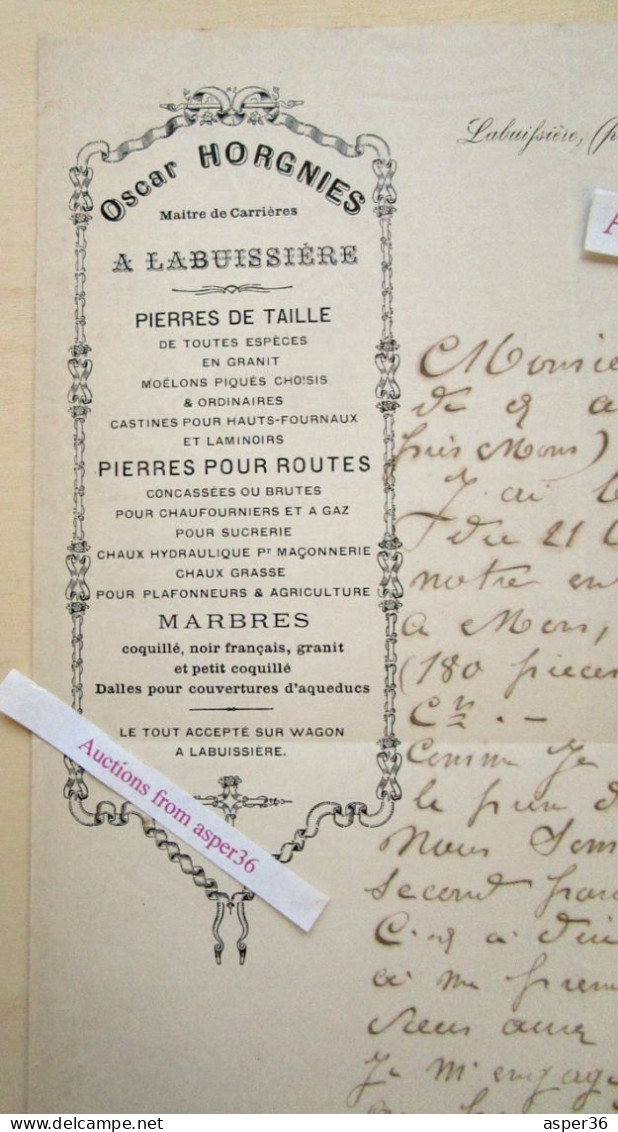 Oscar HORGNIES
Maitre de Carrières
A LABUISSIÈRE
PIERRES DE TAILLE
DE TOUTES ESPÈCES
EN GRANIT
MOËLONS PIQUÉS CHOISIS
& ORDINAIRES
CASTINES POUR HAUTS-FOURNAUX
ET LAMINOIRS
PIERRES POUR ROUTES
CONCASSÉES OU BRUTES
POUR CHAUFOURNIERS ET A GAZ
POUR SUCRERIE
CHAUX HYDRAULIQUE Pr MAÇONNERIE
CHAUX GRASSE
POUR PLAFONNEURS & AGRICULTURE
MARBRES
coquillé, noir français, granit
et petit coquillé
Dalles pour couvertures d'aqueducs
LE TOUT ACCEPTÉ SUR WAGON
A LABUISSIÈRE.
Auctions from asper36
Labuissière, (p
A
Monsie
de
près Mons)
J'ai
du 21
notre en
a Mons,
(180 pieces
Comme je
le
Nous Som
second
a
a me prem
Je m'engag
asper36
asper36